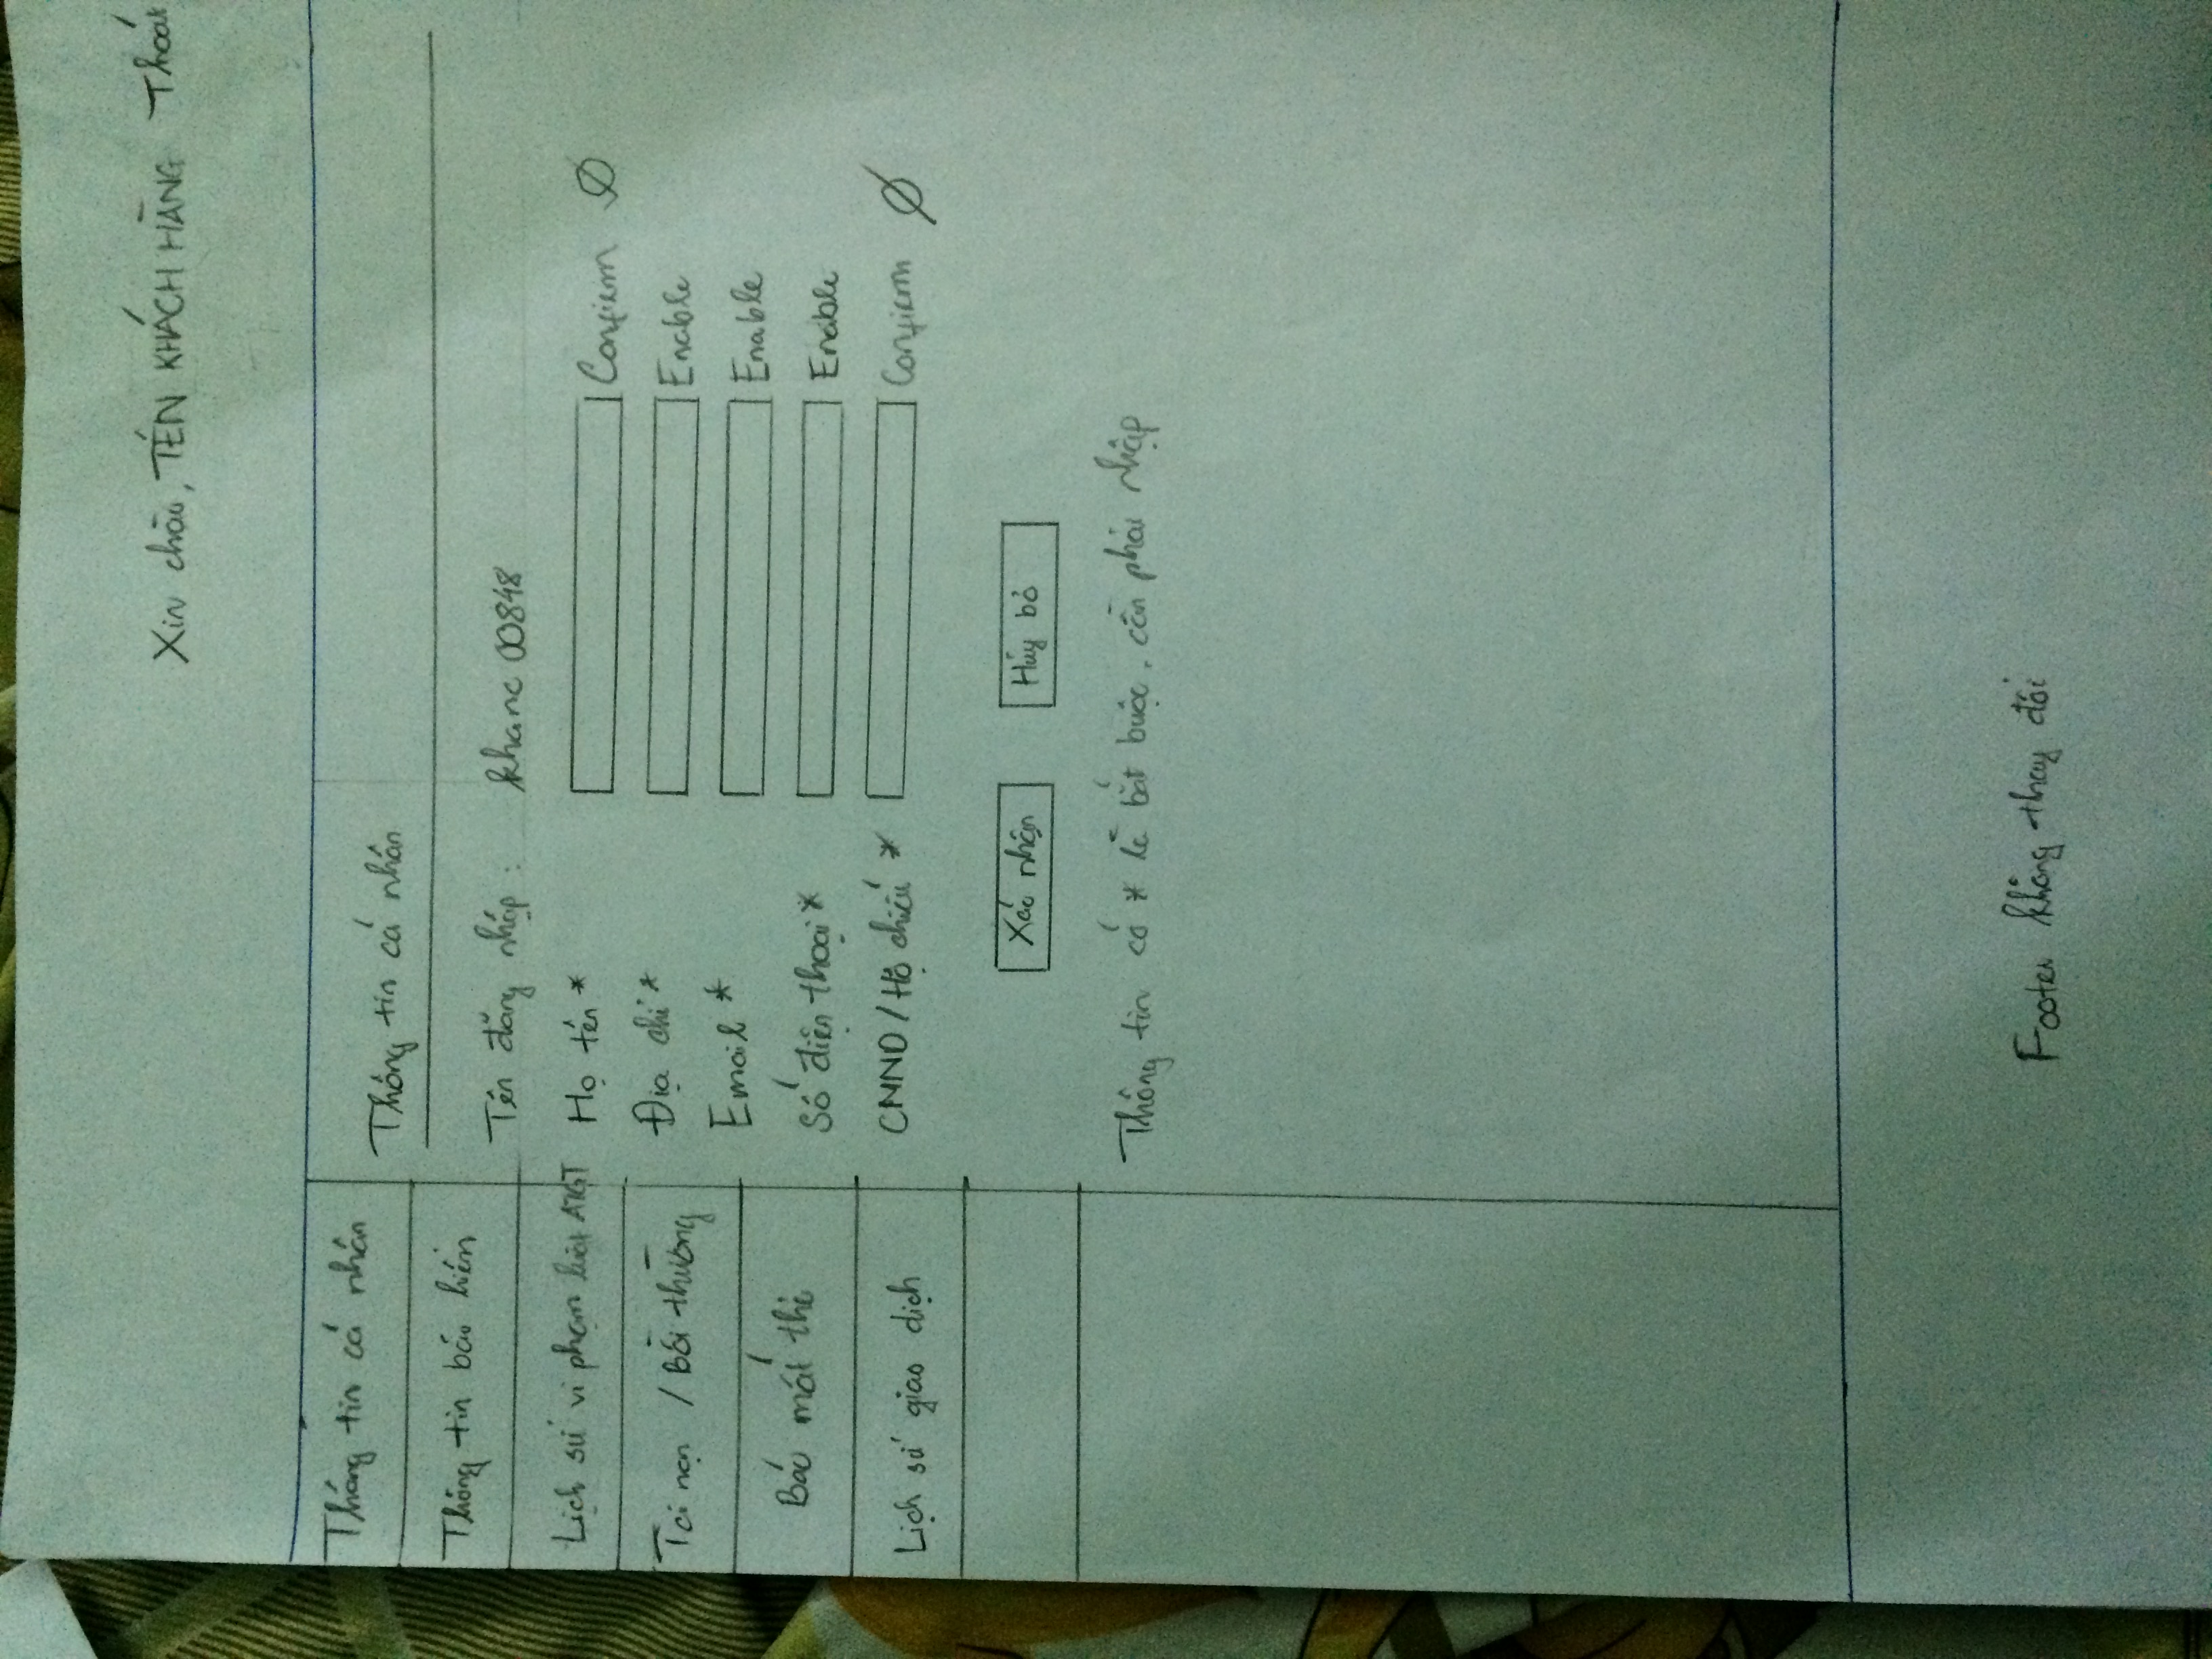 Xin chào, TÊN KHÁCH HÀNG Thoát
Thông tin cá nhân
Thông tin bảo hiểm
Lịch sử vi phạm luật ATGT
Tai nạn / Bồi thường
Báo mất thẻ
Lịch sử giao dịch
Thông tin cá nhân
Tên đăng nhập : khanc 00848
Họ tên * Confirm Ø
Địa chỉ * Enable
Email * Enable
Số điện thoại * Enable
CMND / Hộ chiếu * Confirm Ø
Xác nhận Hủy bỏ
Thông tin có * là bắt buộc, cần phải nhập
Footer không thay đổi